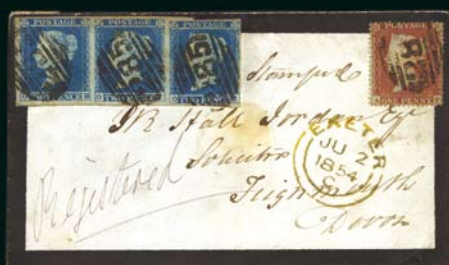 POSTAGE POSTAGE POSTAGE
TWO PENCE TWO PENCE
285 285
POSTAGE
ONE PENNY
285
Stamped
W.R. Hall Jordan Esq
Solicitor
Teignmouth
Devon
Registered
EXETER
JU 2
1854